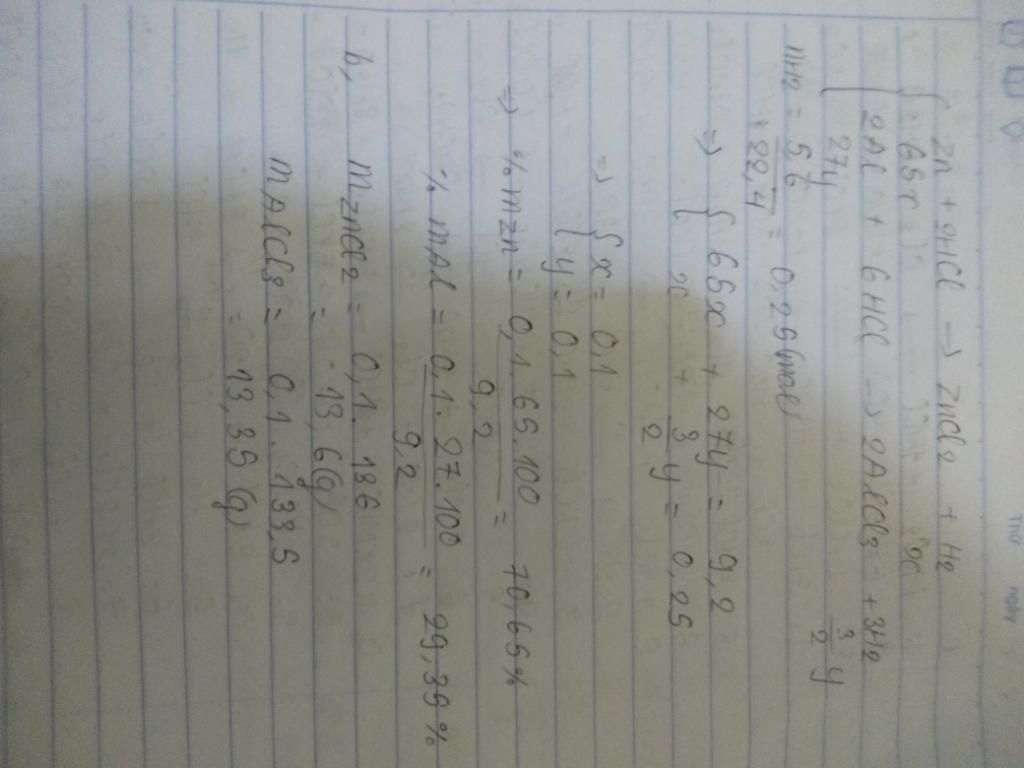 Thứ
ngày
Zn + 2HCl → ZnCl2 + H2
65x x
2Al + 6HCl → 2AlCl3 + 3H2
27y 3/2 y
nH2 = 5,6/22,4 = 0,25(mol)
=> { 65x + 27y = 9,2
x + 3/2 y = 0,25
=> { x = 0,1
y = 0,1
=> % mZn = 0,1.65.100/9,2 = 70,65%
% mAl = 0,1.27.100/9,2 = 29,35%
b, mZnCl2 = 0,1.136
= 13,6(g)
mAlCl3 = 0,1.133,5
= 13,35(g)